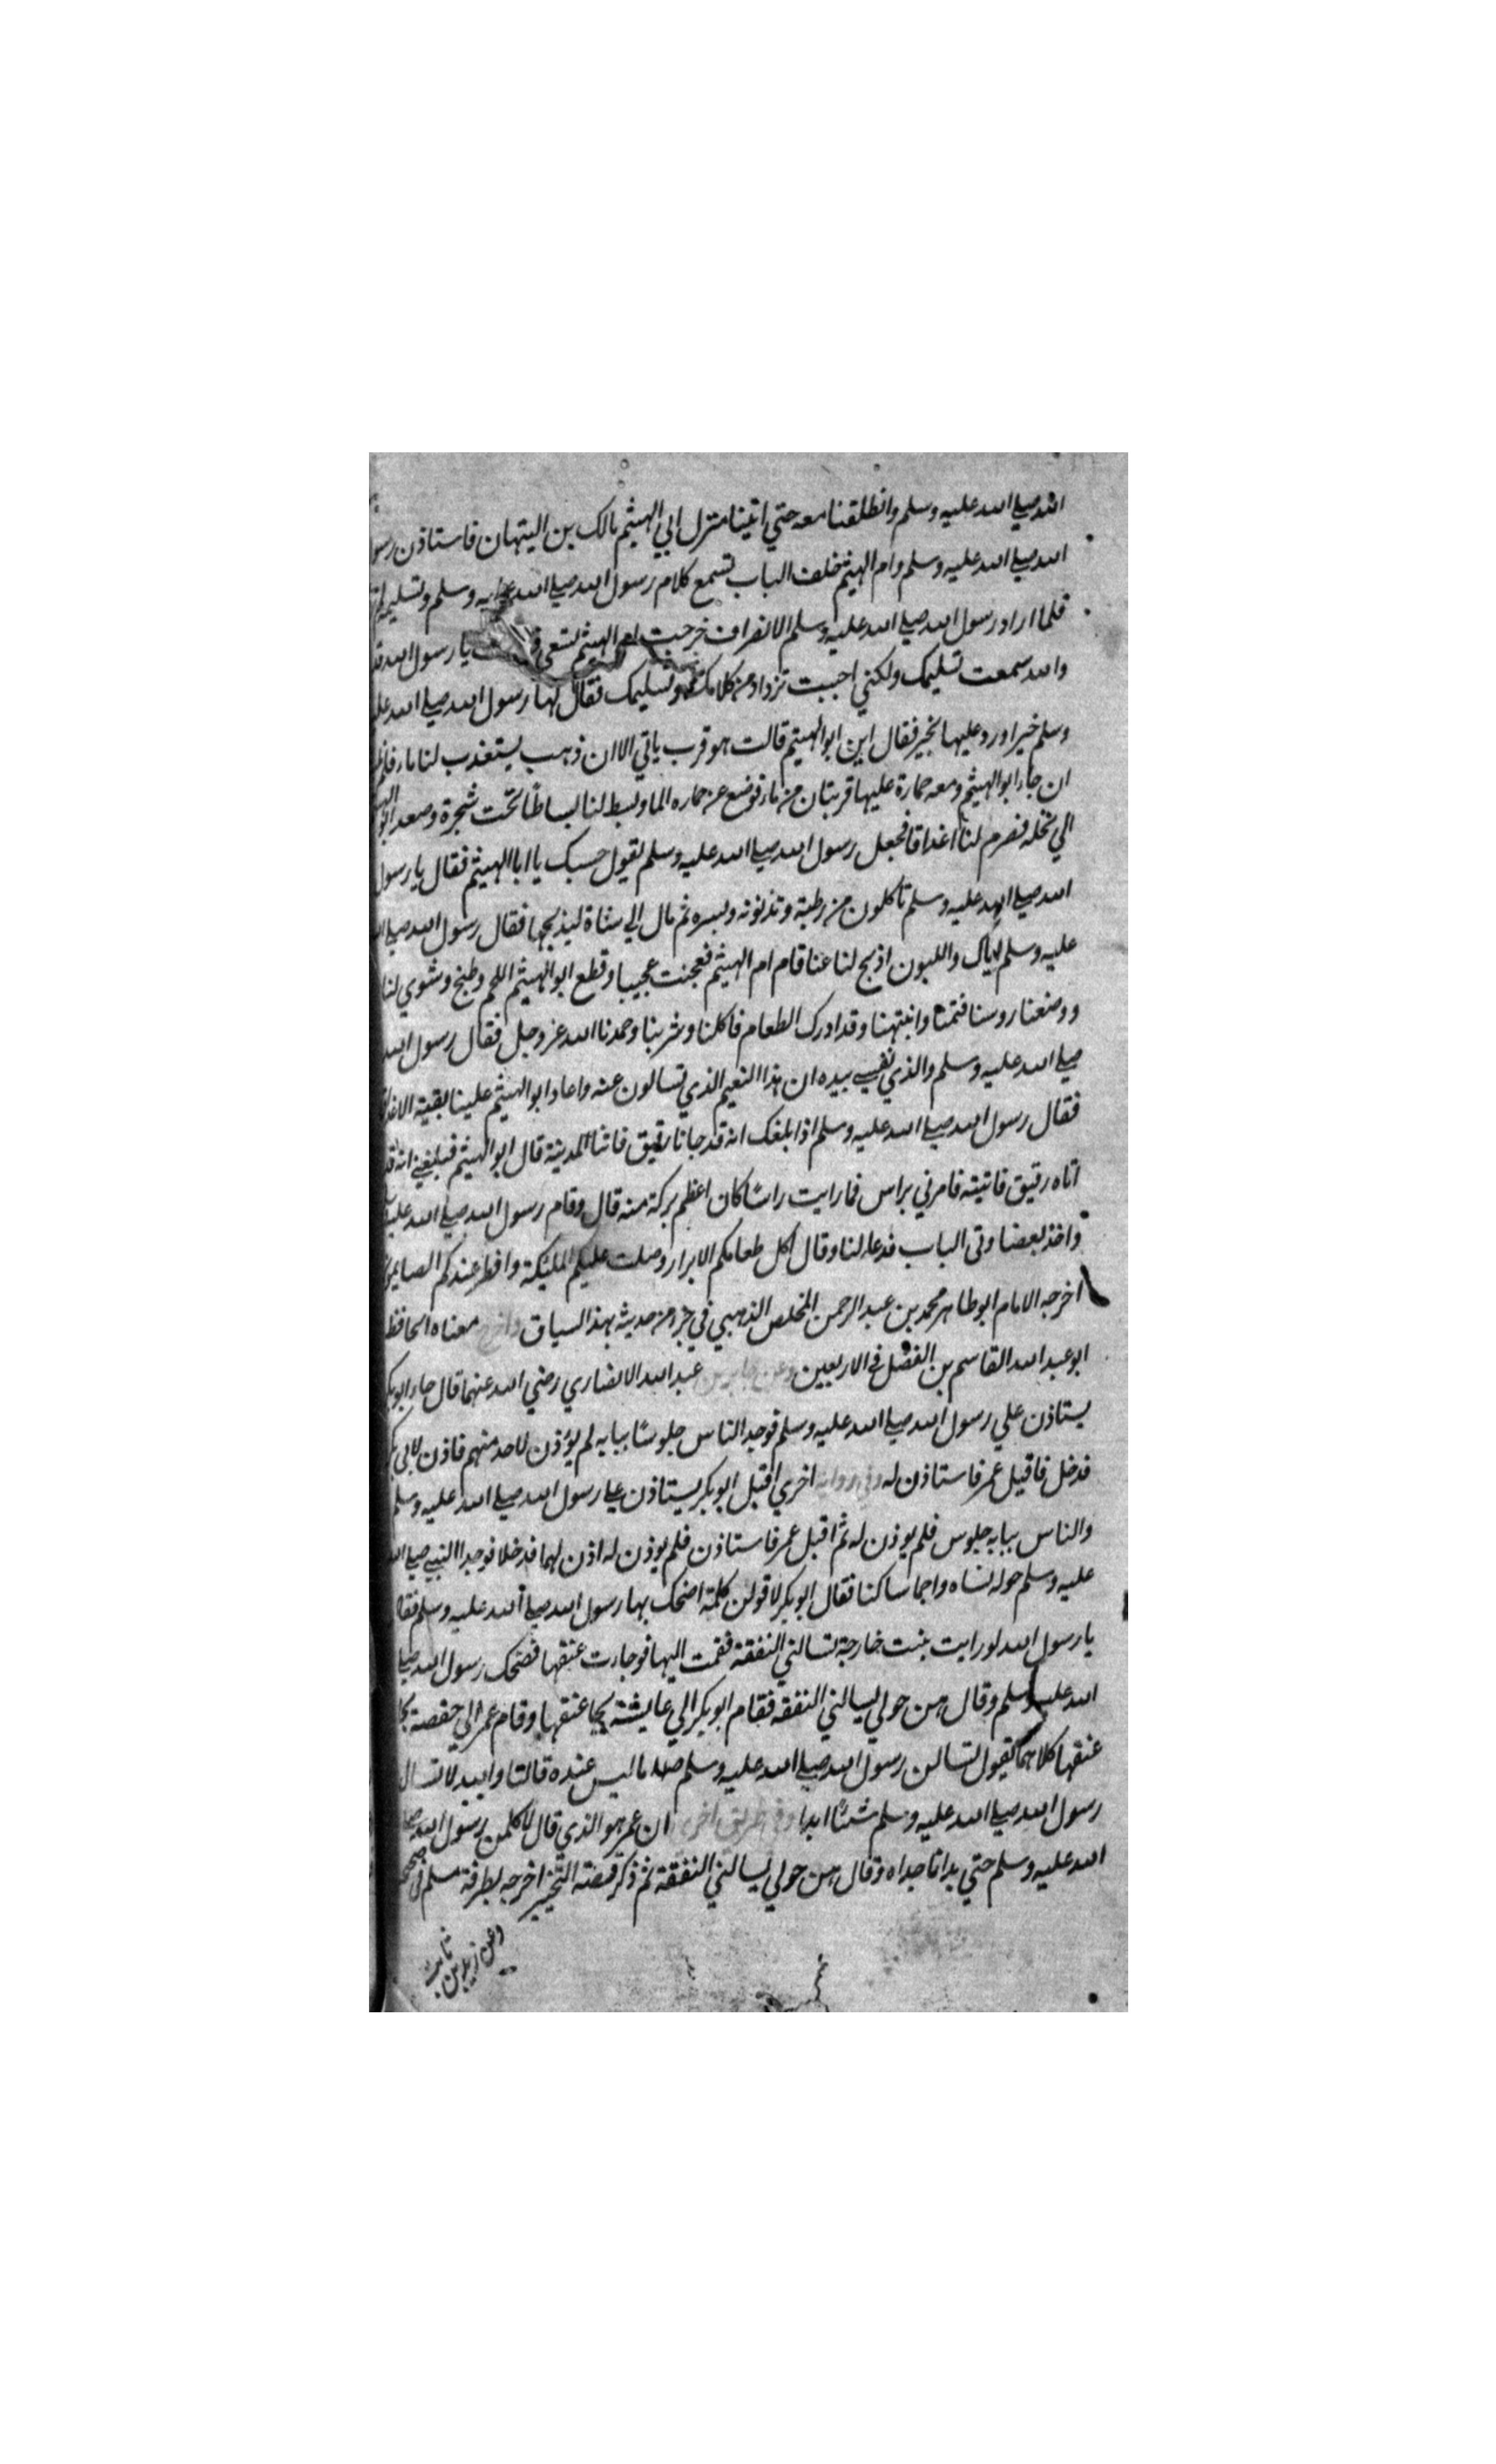 الله صلي الله عليه وسلم وانطلقنا معه حتي اتينا منزل ابي الهيثم مالك بن التيهان فاستاذن رسو
الله صلي الله عليه وسلم وام الهيثم خلف الباب تسمع كلام رسول الله صلي الله عليه وسلم وتسليمه
فلما اراد رسول الله صلي الله عليه وسلم الانصراف خرجت ام الهيثم تسعي يا رسول الله قد
والله سمعت تسليمك ولكني احببت تزداد من كلامك وتسليمك فقال لها رسول الله صلي الله عليه
وسلم خيرا ورد عليها بخير فقال اين ابو الهيثم قالت هو قرب ياتي الاان ذهب يستعذب لنا ماء فلم
ان جاء ابو الهيثم ومعه حمارة عليها قربتان من ماء فوضع عن حماره الما وبسط لنا بساطا تحت شجرة وصعد ابو الهيثم
الي نخله فصرم لنا اغداقا فجعل رسول الله صلي الله عليه وسلم يقول حسبك يا ابا الهيثم فقال يا رسول
الله صلي الله عليه وسلم تاكلون من رطبته وتذنوبه وبسره ثم مال الي شاة ليذبحها فقال رسول الله صلي الله
عليه وسلم اياك واللبون اذبح لنا عنا قام ام الهيثم فعجنت عجيبا وقطع ابو الهيثم اللحم وطبخ وشوي لنا
ووضعنا روسنا فنمنا وانتبهنا وقد ادرك الطعام فاكلنا وشربنا وحمدنا الله عز وجل فقال رسول الله
صلي الله عليه وسلم والذي نفسي بيده ان هذا النعيم الذي تسالون عنه واعاد ابو الهيثم علينا بقية الاغداق
فقال رسول الله صلي الله عليه وسلم اذا بلغك انه قد جانا رقيق فاتنا المدينة قال ابو الهيثم فبلغني انه قد
اتاه رقيق فاتيته فامرني براس فما رايت راسا كان اعظم بركة منه قال وقام رسول الله صلي الله عليه
واخذ بعضا وتي الباب فدعا لنا وقال اكل طعامكم الابرار وصلت عليكم الملئكة وافطر عندكم الصايمون
اخرجه الامام ابو طاهر محمد بن عبد الرحمن المخلص الذهبي في جزء من حديثه بهذا السياق واخرج معناه الحافظ
ابو عبد الله القاسم بن الفضل في الاربعين وعن جابر بن عبد الله الانصاري رضي الله عنهما قال جاء ابو بكر
يستاذن علي رسول الله صلي الله عليه وسلم فوجد الناس جلوسا ببابه لم يؤذن لاحد منهم فاذن لابي بكر
فدخل فاقبل عمر فاستاذن له وفي رواية اخري اقبل ابو بكر يستاذن علي رسول الله صلي الله عليه وسلم
والناس ببابه جلوس فلم يوذن له ثم اقبل عمر فاستاذن فلم يوذن له اذن لهما فدخلا فوجدا النبي صلي الله
عليه وسلم حوله نساه واجما ساكنا فقال ابو بكر لاقولن كلمة اضحك بها رسول الله صلي الله عليه وسلم فقال
يا رسول الله لو رايت بنت خارجة تسالني النفقة فقمت اليها فوجاءت عنقها فضحك رسول الله صلي
الله عليه وسلم وقال هن حولي يسالني النفقه فقام ابو بكر الي عايشة يجا عنقها وقام عمر الي حفصة يجا
عنقها كلاهما يقول تسالن رسول الله صلي الله عليه وسلم ما ليس عنده قالتا والله لا نسال
رسول الله صلي الله عليه وسلم شئا ابدا وفي طريق اخري ان عمر هو الذي قال لاكلمن رسول الله صلي
الله عليه وسلم حتي بدا ناجداه وقال هن حولي يسالني النفقة ثم ذكر قصة التخيير اخرجه بطرقه مسلم في
وعن زيد بن ثابت